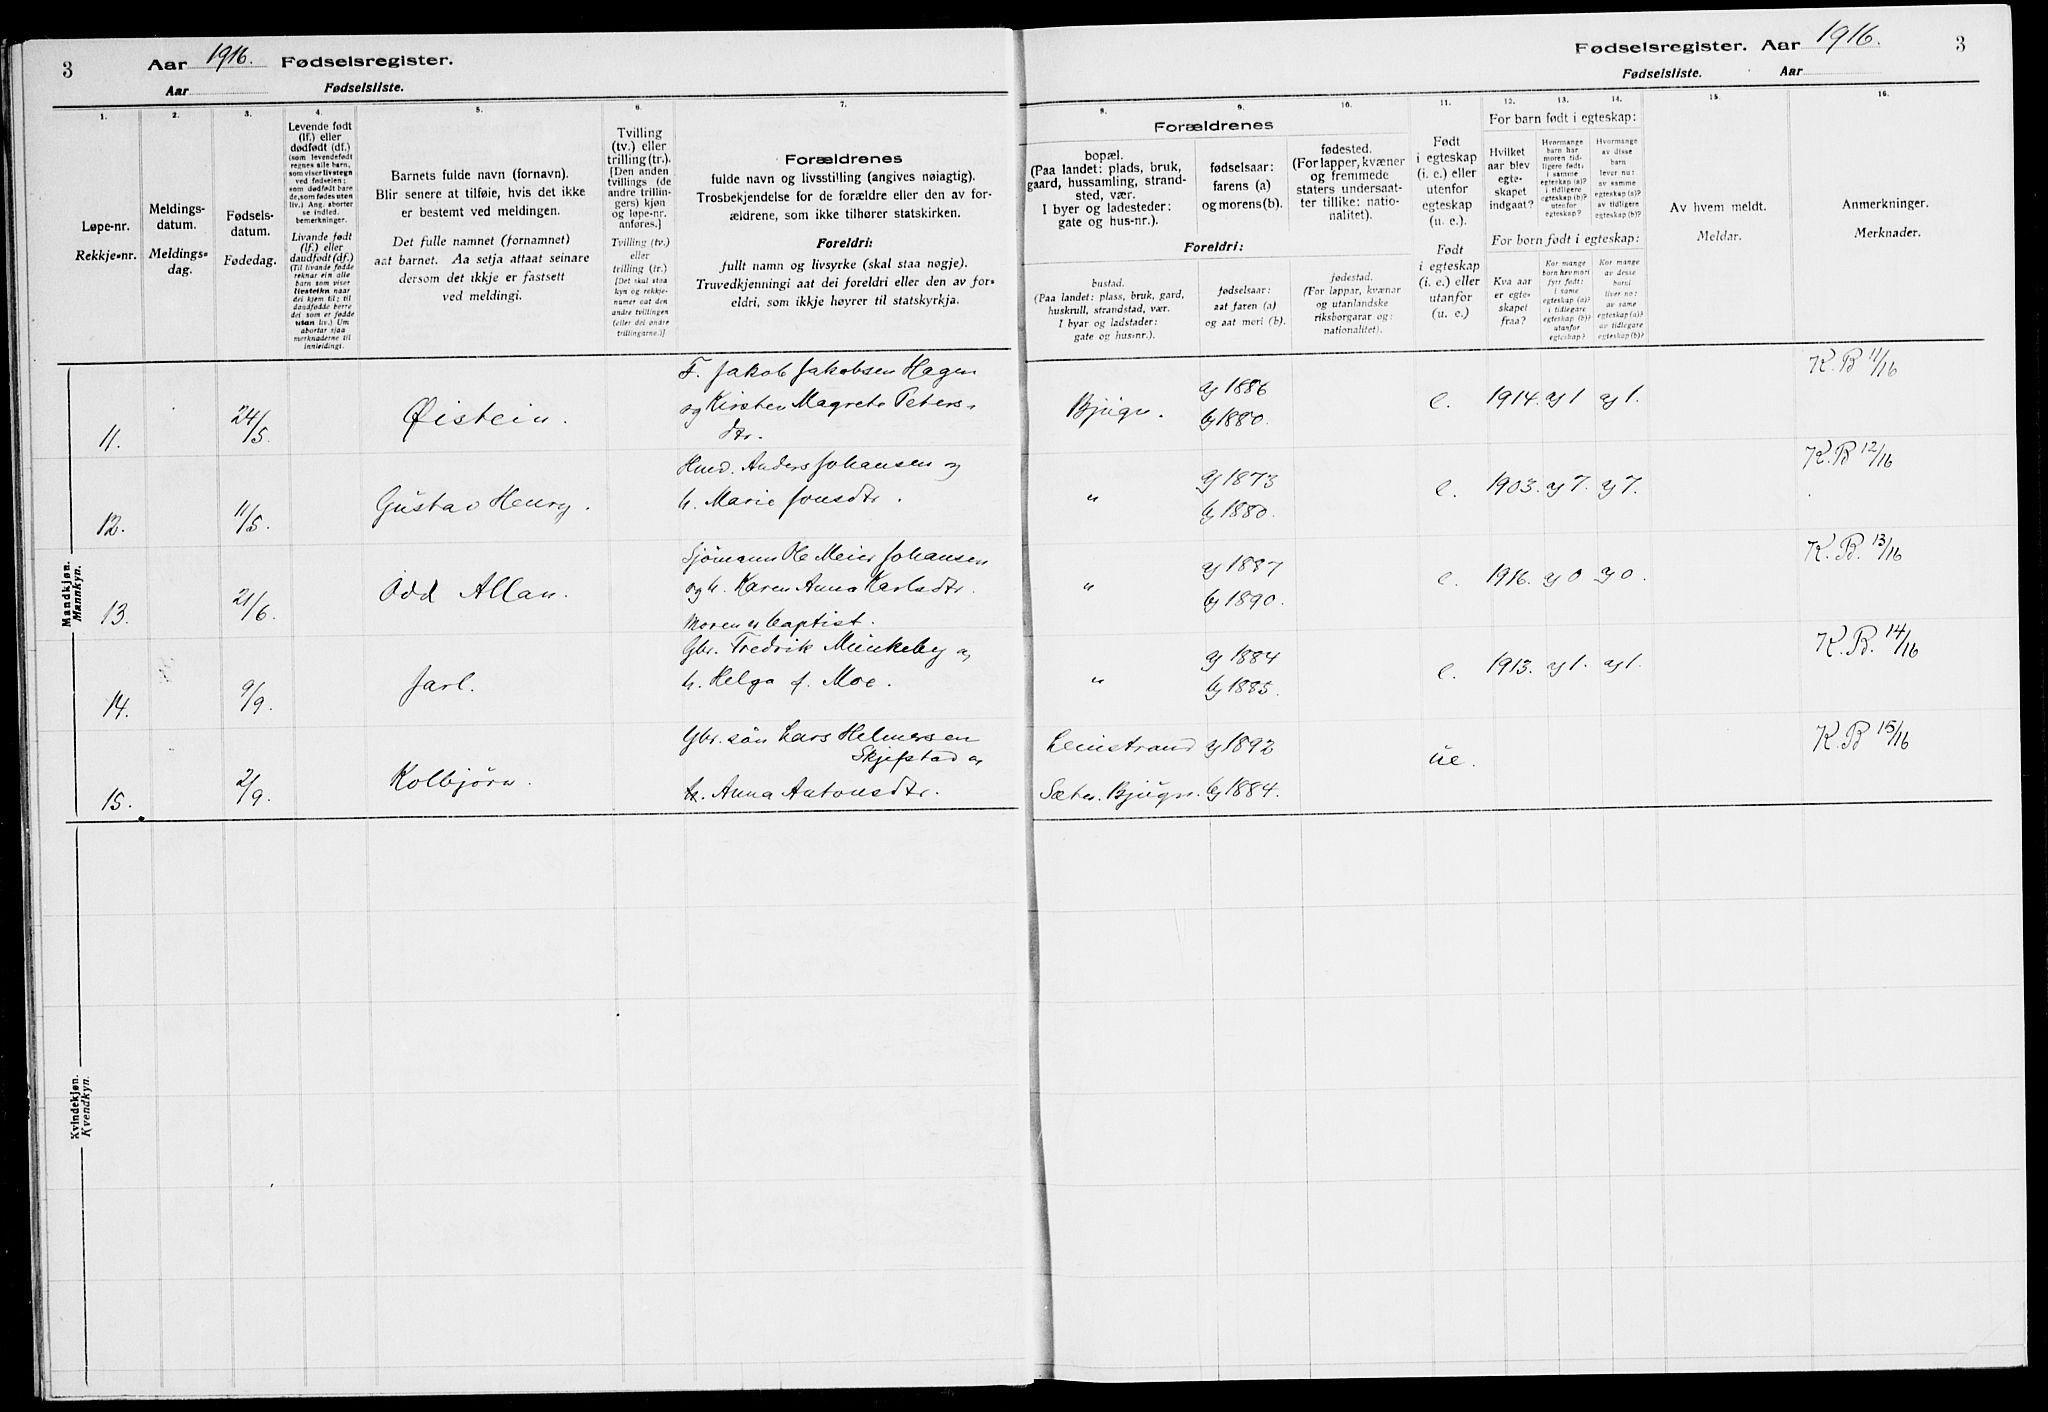 3
Aar 1916. Fødselsregister.
Aar Fødselsliste.
1.
2.
3.
4.
5.
6.
7.
Løpe-nr.
Rekkje-nr.
Meldings-
datum.
Meldings-
dag.
Fødsels-
datum.
Fødedag.
Levende født
(lf.) eller
dødfødt (df.)
(som levendefødt
regnes alle barn,
som viser livstegn
ved fødselen;
som dødfødt bare
de, som fødes uten
liv.) Ang. aborter
se indled.
bemerkninger.
Livande født
(lf.) eller
daudfødt (df.)
(Til livande fødde
reknar ein alle
barn som viser
livsteikn naar
dei kjem til; til
daudfødde berre
dei som er fødde
utan liv.) Um
abortar sjaa
merknaderne til
innleidingi.
Barnets fulde navn (fornavn).
Blir senere at tilføie, hvis det ikke
er bestemt ved meldingen.
Det fulle namnet (fornamnet)
aat barnet. Aa setja attaat seinare
dersom det ikkje er fastsett
ved meldingi.
Tvilling
(tv.) eller
trilling (tr.).
[Den anden
tvillings (de
andre trillin-
gers) kjøn
og løpe-nr.
anføres.]
Tvilling (tv.)
eller
trilling (tr.)
[Det skal staa
kyn og rekkje-
numer aat den
andre tvillingen
(eller dei andre
trillingarne.)]
Forældrenes
fulde navn og livsstilling (angives nøiagtig).
Trosbekjendelse for de forældre eller den av for-
ældrene, som ikke tilhører statskirken.
Foreldri:
fullt namn og livsyrke (skal staa nøgje).
Truvedkjenningi aat dei foreldri eller den av for-
eldri, som ikkje høyrer til statskyrkja.
Mandkjøn.
Mannkyn.
11.
24/5.
Øistein.
F. Jakob Jakobsen Hagen
og Kirsten Magrete Peters-
dtr.
12.
11/5.
Gustav Henry.
Hmd. Anders Johansen og
h. Marie Jonsdtr.
13.
21/6.
Odd Allan.
Sjømann Ole Meier Johansen
og h. Karen Anna Karlsdtr.
Moren er baptist.
14.
9/9.
Jarl.
Gbr. Fredrik Minkeby og
h. Helga f. Moe.
15.
2/9.
Kolbjørn.
Gbr. søn Lars Helmersen
Skjefstad og
Anna Antonsdtr.
Kvindekjøn.
Kvendkyn.
Fødselsregister. Aar 1916. 3
Fødselsliste. Aar
8.
9.
10.
11.
12.
13.
14.
15.
16.
Forældrenes
bopæl.
(Paa landet: plads, bruk,
gaard, hussamling, strand-
sted, vær.
I byer og ladesteder:
gate og hus-nr.).
fødselsaar:
farens (a)
og morens (b).
fødested.
(For lapper, kvæner
og fremmede
staters undersaat-
ter tillike: natio-
nalitet).
Foreldri:
bustad.
(Paa landet: plass, bruk, gard,
huskrull, strandstad, vær.
I byar og ladstader:
gate og hus-nr.).
fødselsaar:
aat faren (a)
og aat mori (b).
fødestad.
(For lappar, kvænar
og utanlandske
riksborgarar og:
nationalitet).
Født
i egteskap
(i. e.) eller
utenfor
egteskap
(u. e.).
Født
i egteskap
(i. e.) eller
utanfor
(u. e.).
For barn født i egteskap:
Hvilket
aar blev
egte-
skapet
indgaat?
Hvormange
barn har
moren tid-
ligere født:
i samme
egteskap (a)?
i tidligere
egteskap (b)?
utenfor
egteskap?
Hvormange
av disse
barn
lever nu:
av samme
egteskap (a)?
av tidligere
egteskap (b)?
For born født i egteskap:
Kva aar
er egte-
skapet
fraa?
Kor mange
born hev mori
fyrr født:
i same
egteskap (a)?
i tidlegare
egteskap (b)?
utanfor
egteskap?
Kor mange
av desse
borni
liver no:
av same
egteskap (a)?
av tidlegare
egteskap (b)?
Av hvem meldt.
Meldar.
Anmerkninger.
Merknader.
Bjugn. a) 1886 e. 1914. a) 1 a) 1. K. B 11/16
b) 1880.
" a) 1873 e. 1903. a) 7. a) 7. K. B 12/16
b) 1880.
" a) 1887 e. 1916. a) 0 a) 0. K. B. 13/16
b) 1890.
" a) 1884 e. 1913. a) 1. a) 1. K. B. 14/16
b) 1885.
Leinstrand a) 1892 ue. K. B 15/16
Sæter. Bjugn. b) 1884.